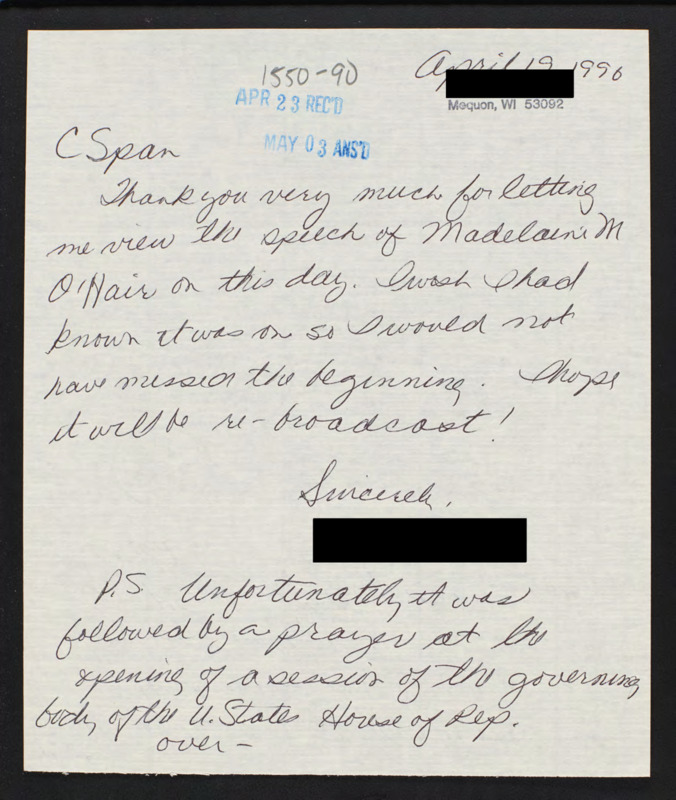 April 19 1990
1550-90
APR 23 REC'D
Mequon, WI 53092
MAY 03 ANS'D
C Span
Thank you very much for letting
me view the speech of Madelaine M
O'Hair on this day. I wish I had
known it was on so I would not
have missed the beginning. I hope
it will be re-broadcast!
Sincerely,
P.S Unfortunately it was
followed by a prayer at the
opening of a session of the governing
body of the U. States House of Rep.
over-